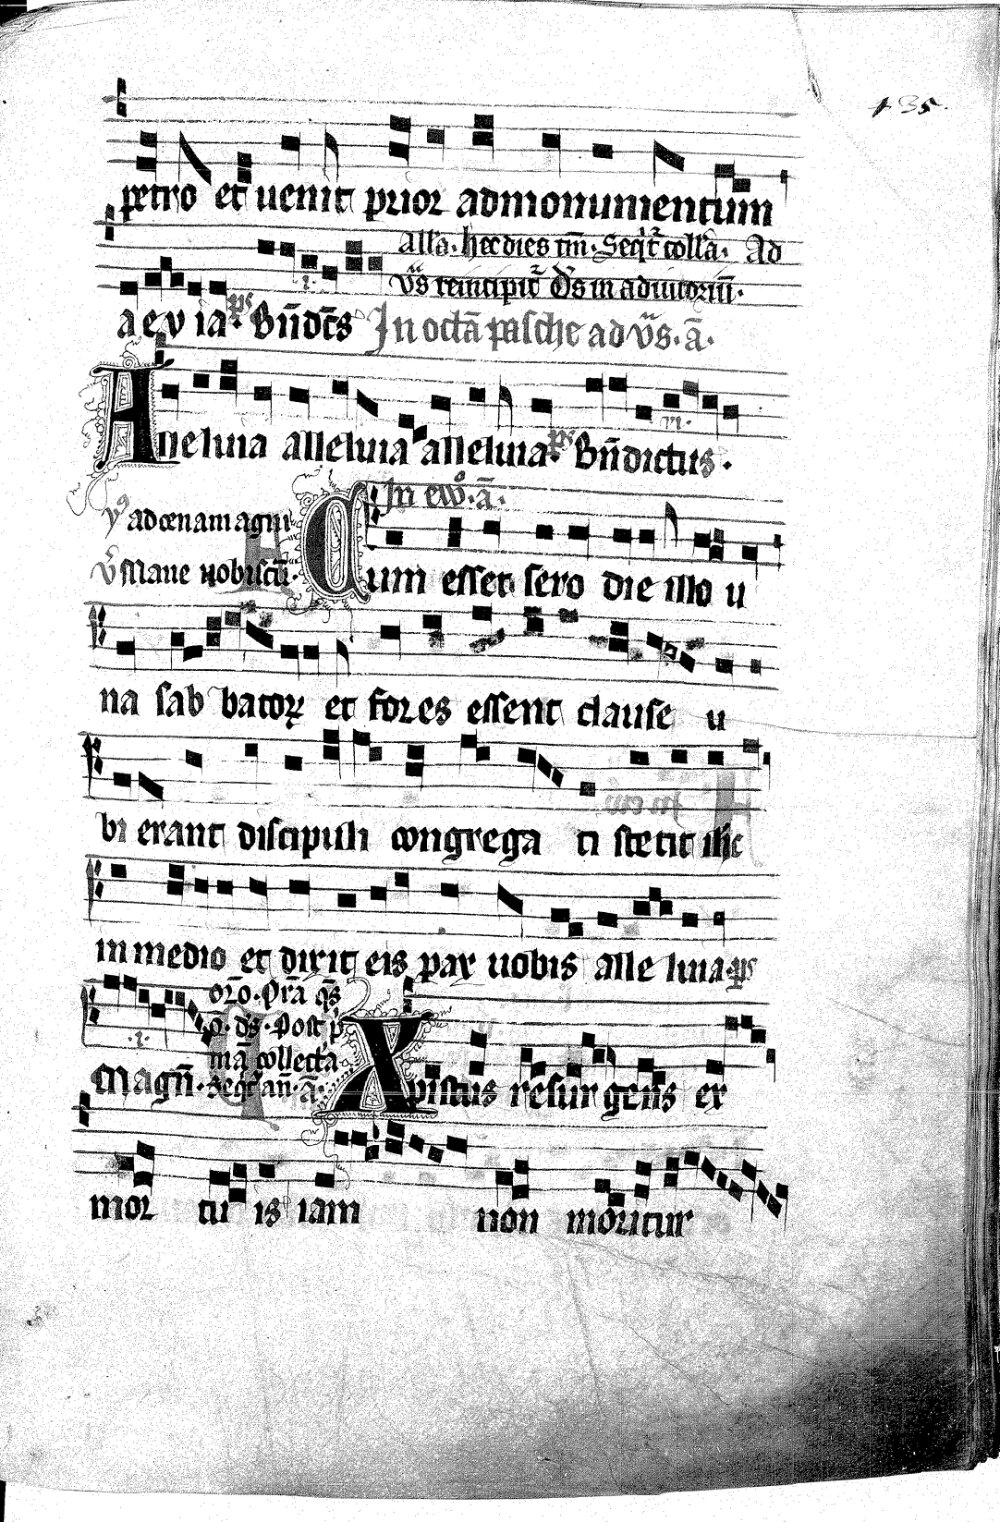 135.
petro et uenit prior ad monumentum
All'a. hec dies tm̄. Seqͥtᷣ coll'a. Ad
v̄s̄ reincipitᷣ Ds in adiutoriū.
a e v ia. p̄s̄ Bn̄dc̄s In octā pasche ad v̄s̄. ā.
Alleluia alleluia alleluia. p̄s̄ Bn̄dictus.
In ewͦ. ā.
yꝰ ad cenam agni
v̄ Mane nobiscū. Cum esset sero die illo u
na sab batoꝝ et fores essent clause u
bi erant discipuli congrega ti stetit ihc
in medio et dixit eis pax uobis alle luia. p̄s̄
oro. Pra q̄s
ō. ds. Post p̄
mā collecta
Magn̄. Seqᷣ an̄. ā. Xpistus resur gens ex
mor tu is iam non moritur